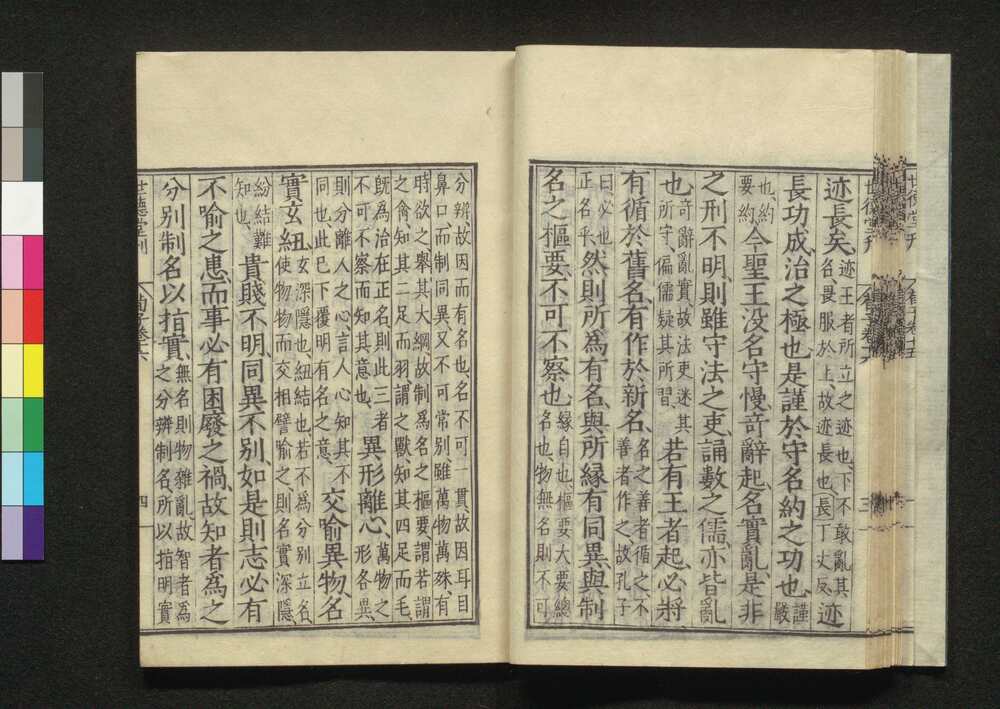 迹長矣、迹王者所立之迹也、下不敢亂其名畏服於上、故迹長也、長丁丈反、迹
長功成、治之極也、是謹於守名約之功也、謹嚴
也、約要約今聖王没、名守慢、奇辭起、名實亂、是非
之刑不明、則雖守法之吏、誦數之儒、亦皆亂
也、奇辭亂實、故法吏迷其所守、偏儒疑其所習、若有王者起、必將
有循於舊名、有作於新名、名之善者循之、不善者作之、故孔子
曰必也正名乎、然則所為有名、與所緣有同異、與制
名之樞要、不可不察也、緣自也、樞要大要總名也、物無名則不可
分辨故因而有名也、名不可一貫、故因耳目
鼻口而制同異又不可常別雖萬物萬殊、有
時欲之舉其大綱故制為名之樞要、謂若謂
之禽、知其二足而羽謂之獸知其四足而毛、
既為治在正名、則此三者不可不察而知其意也、異形離心、萬物之形各異、
則分離人之心、言人心知其不同也、此已下覆明有名之意、交喻異物、名
實玄紐、玄深隱也、紐結也若不為分別立名、使物物而交相譬喻之、則名實深隱、
紛結難知也、貴賤不明、同異不別、如是則志必有
不喻之患、而事必有困廢之禍、故知者為之
分別制名以指實、無名則物雜亂、故智者為之分辨制名、所以指明實
世德堂刊
荀子卷六
四